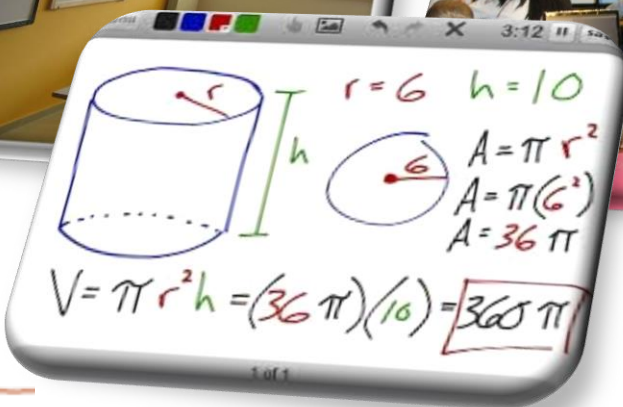 3:12
r
h
r = 6 h = 10
6
A = π r²
A = π(6²)
A = 36 π
V = π r² h = (36 π)(10) = 360 π
1 of 1